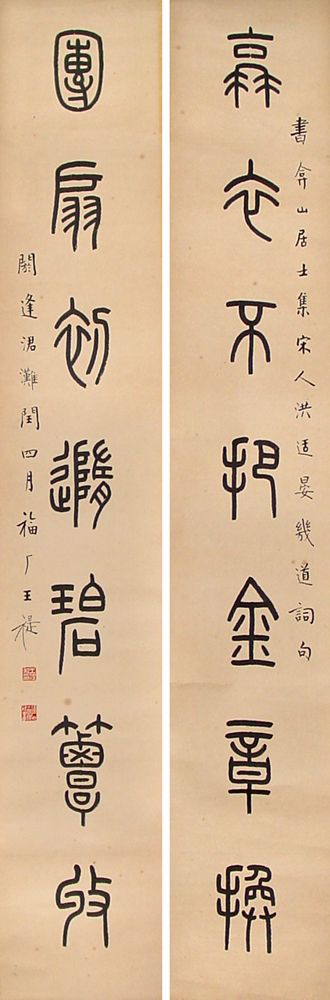 衰衣不把金章換
書弇山居士集宋人洪适晏幾道詞句
團扇初隨碧簟收
閼逢涒灘閏四月福厂王禔